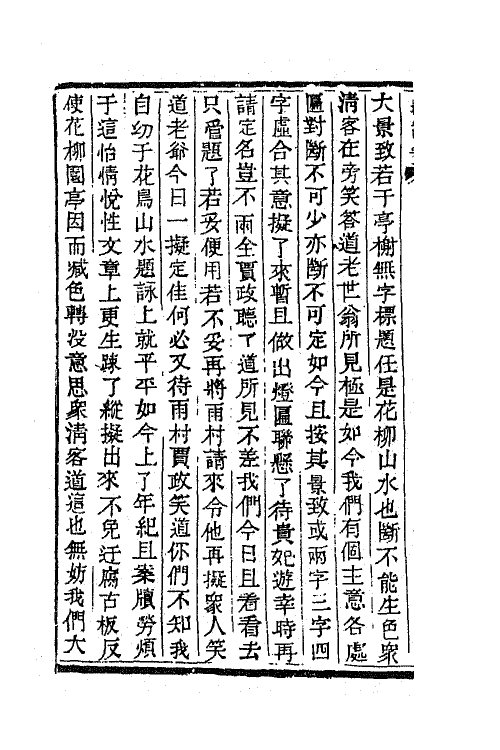 大景致若干亭榭無字標題任是花柳山水也斷不能生色衆
清客在旁笑答道老世翁所見極是如今我們有個主意各處
匾對斷不可少亦斷不可定如今且按其景致或兩字三字四
字虛合其意擬了來暫且做出燈匾聯懸了待貴妃遊幸時再
請定名豈不兩全賈政聽了道所見不差我們今日且看看去
只管題了若妥便用若不妥再將雨村請來令他再擬衆人笑
道老爺今日一擬定佳何必又待雨村賈政笑道你們不知我
自幼于花鳥山水題詠上就平平如今上了年紀且案牘勞煩
于這怡情悅性文章上更生疎了縱擬出來不免迂腐古板反
使花柳園亭因而減色轉沒意思衆清客道這也無妨我們大